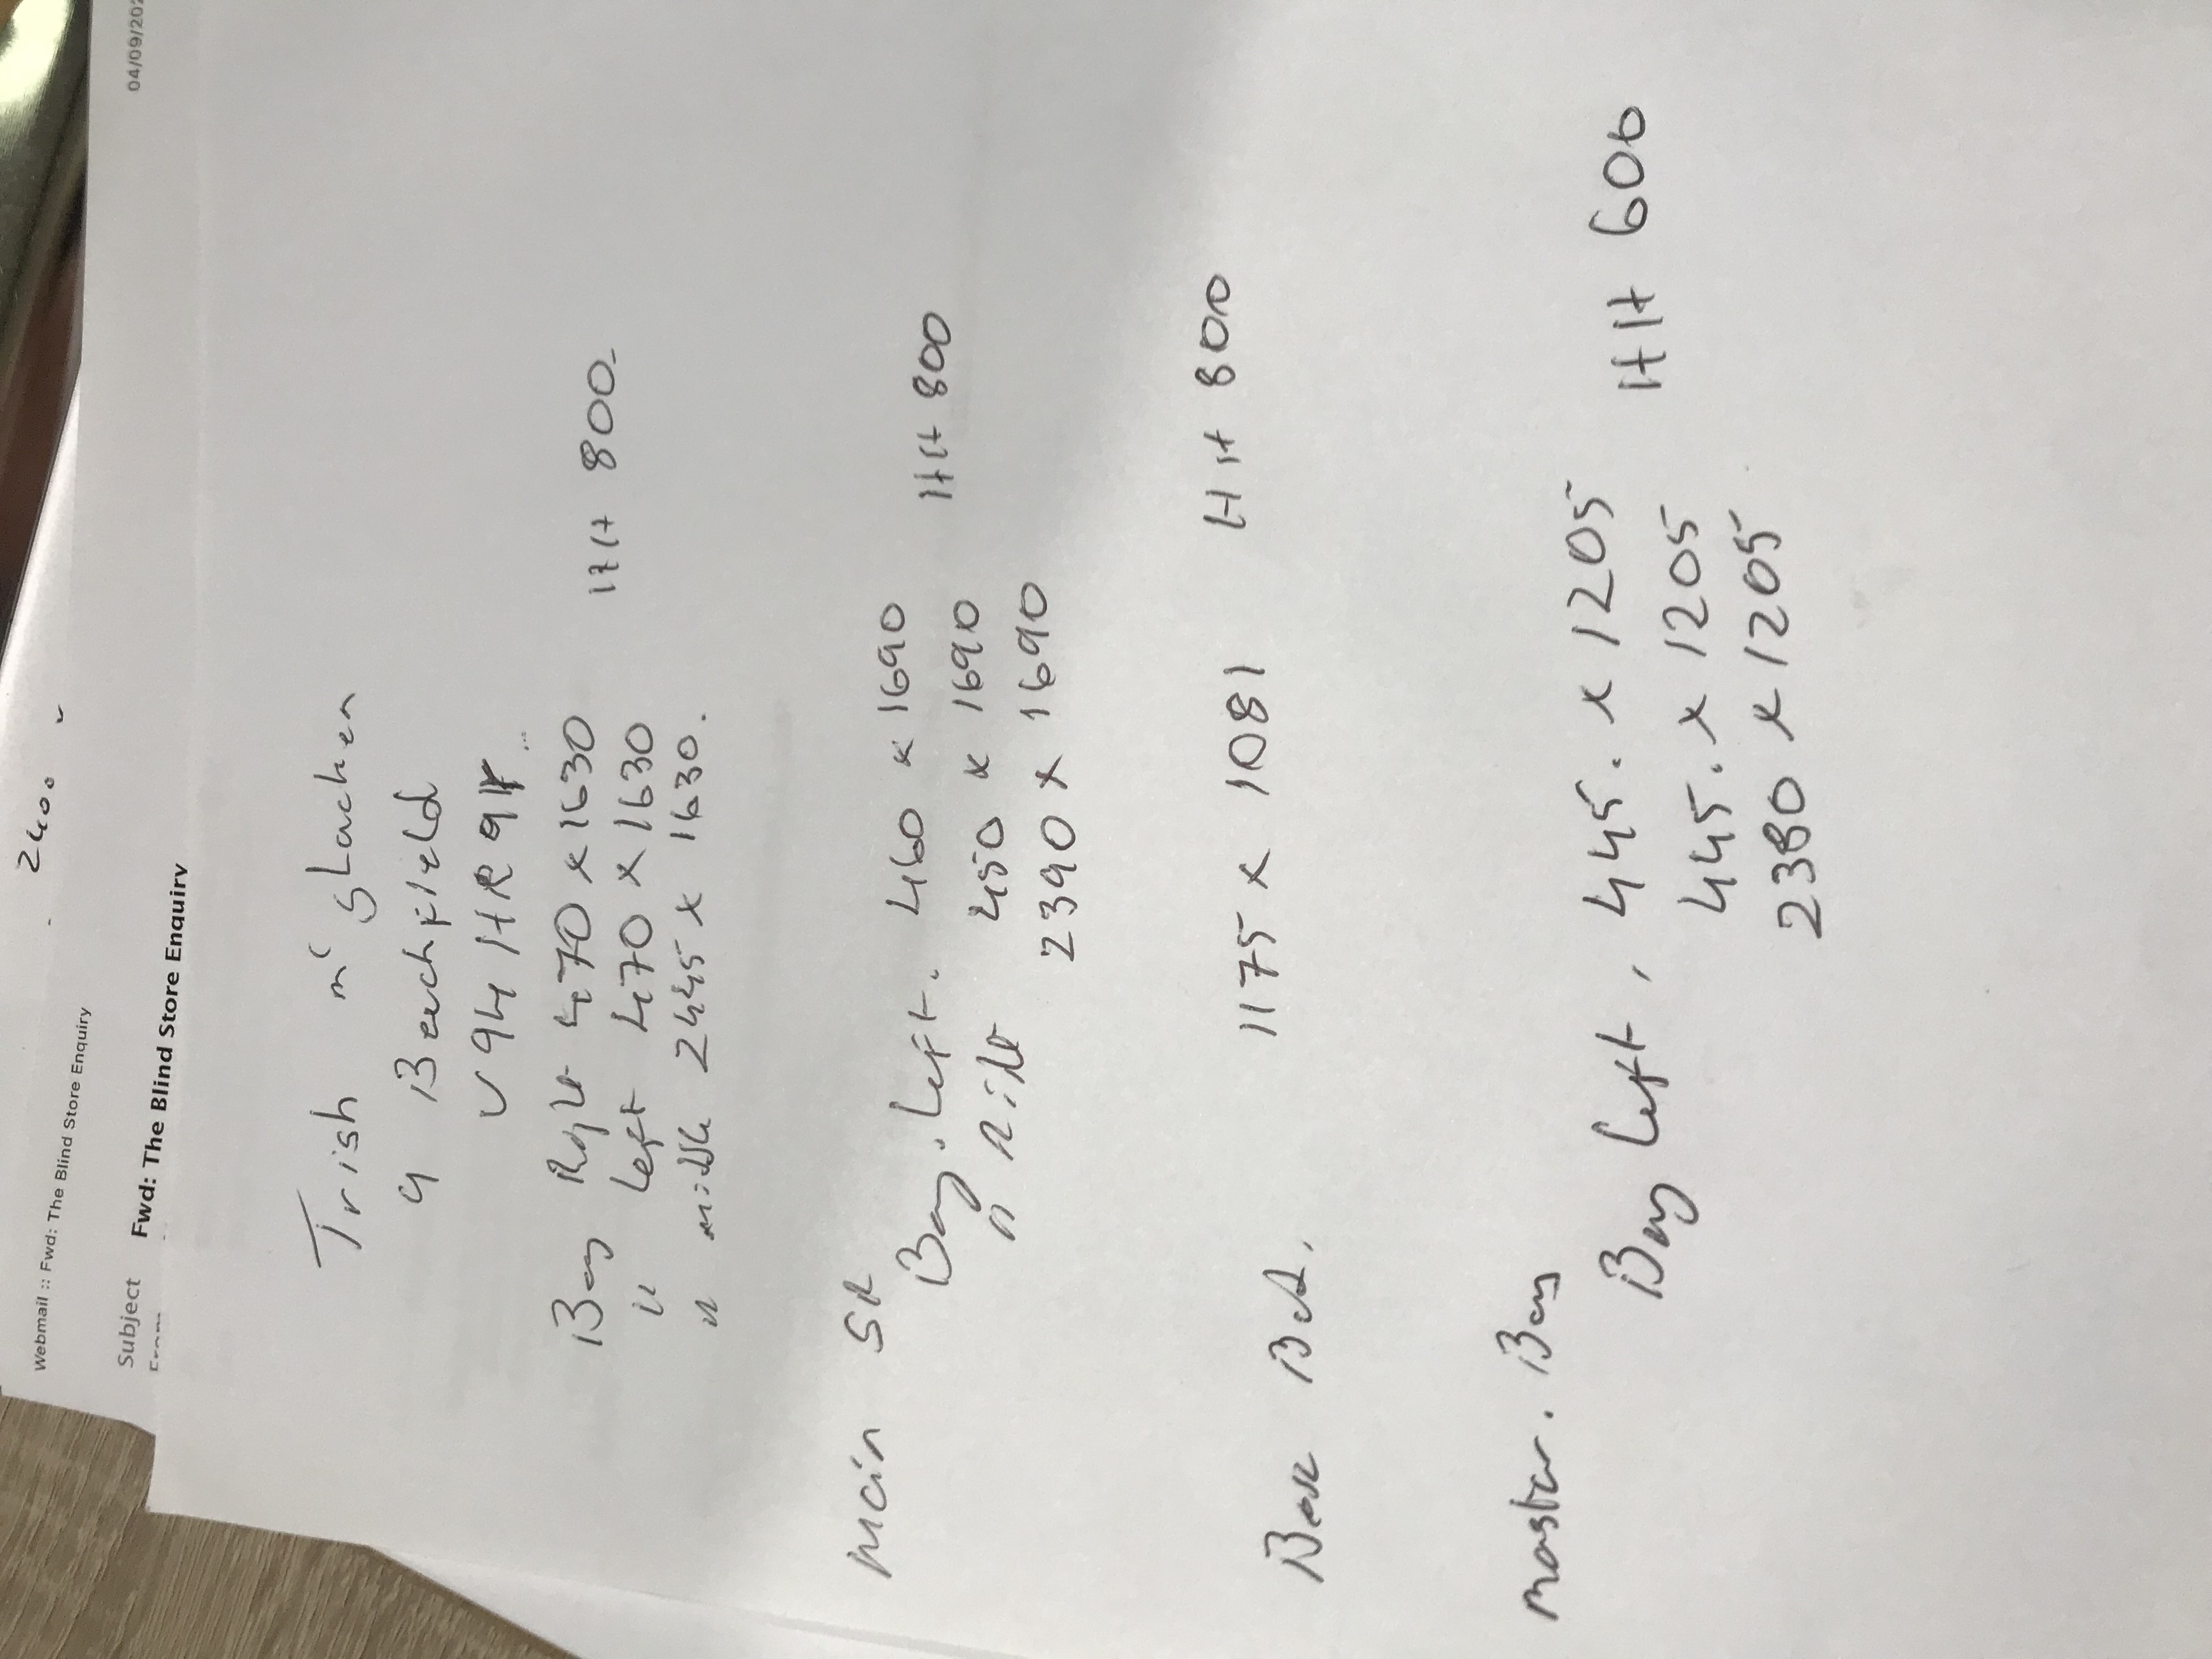 2400
Webmail :: Fwd: The Blind Store Enquiry
04/09/202
Subject Fwd: The Blind Store Enquiry
Trish mc glacken
9 Beechfield
V94 HR9
Bay Right 470 x 1630
" Left 470 x 1630 HH 800
" middle 2445 x 1630.
main SR
Bay. Left. 460 x 1690
" Right 450 x 1690 HH 800
2390 x 1690
Back Bed. 1175 x 1081 HH 800
master. Bay
Bay Left, 445. x 1205
445. x 1205 HH 600
2380 x 1205